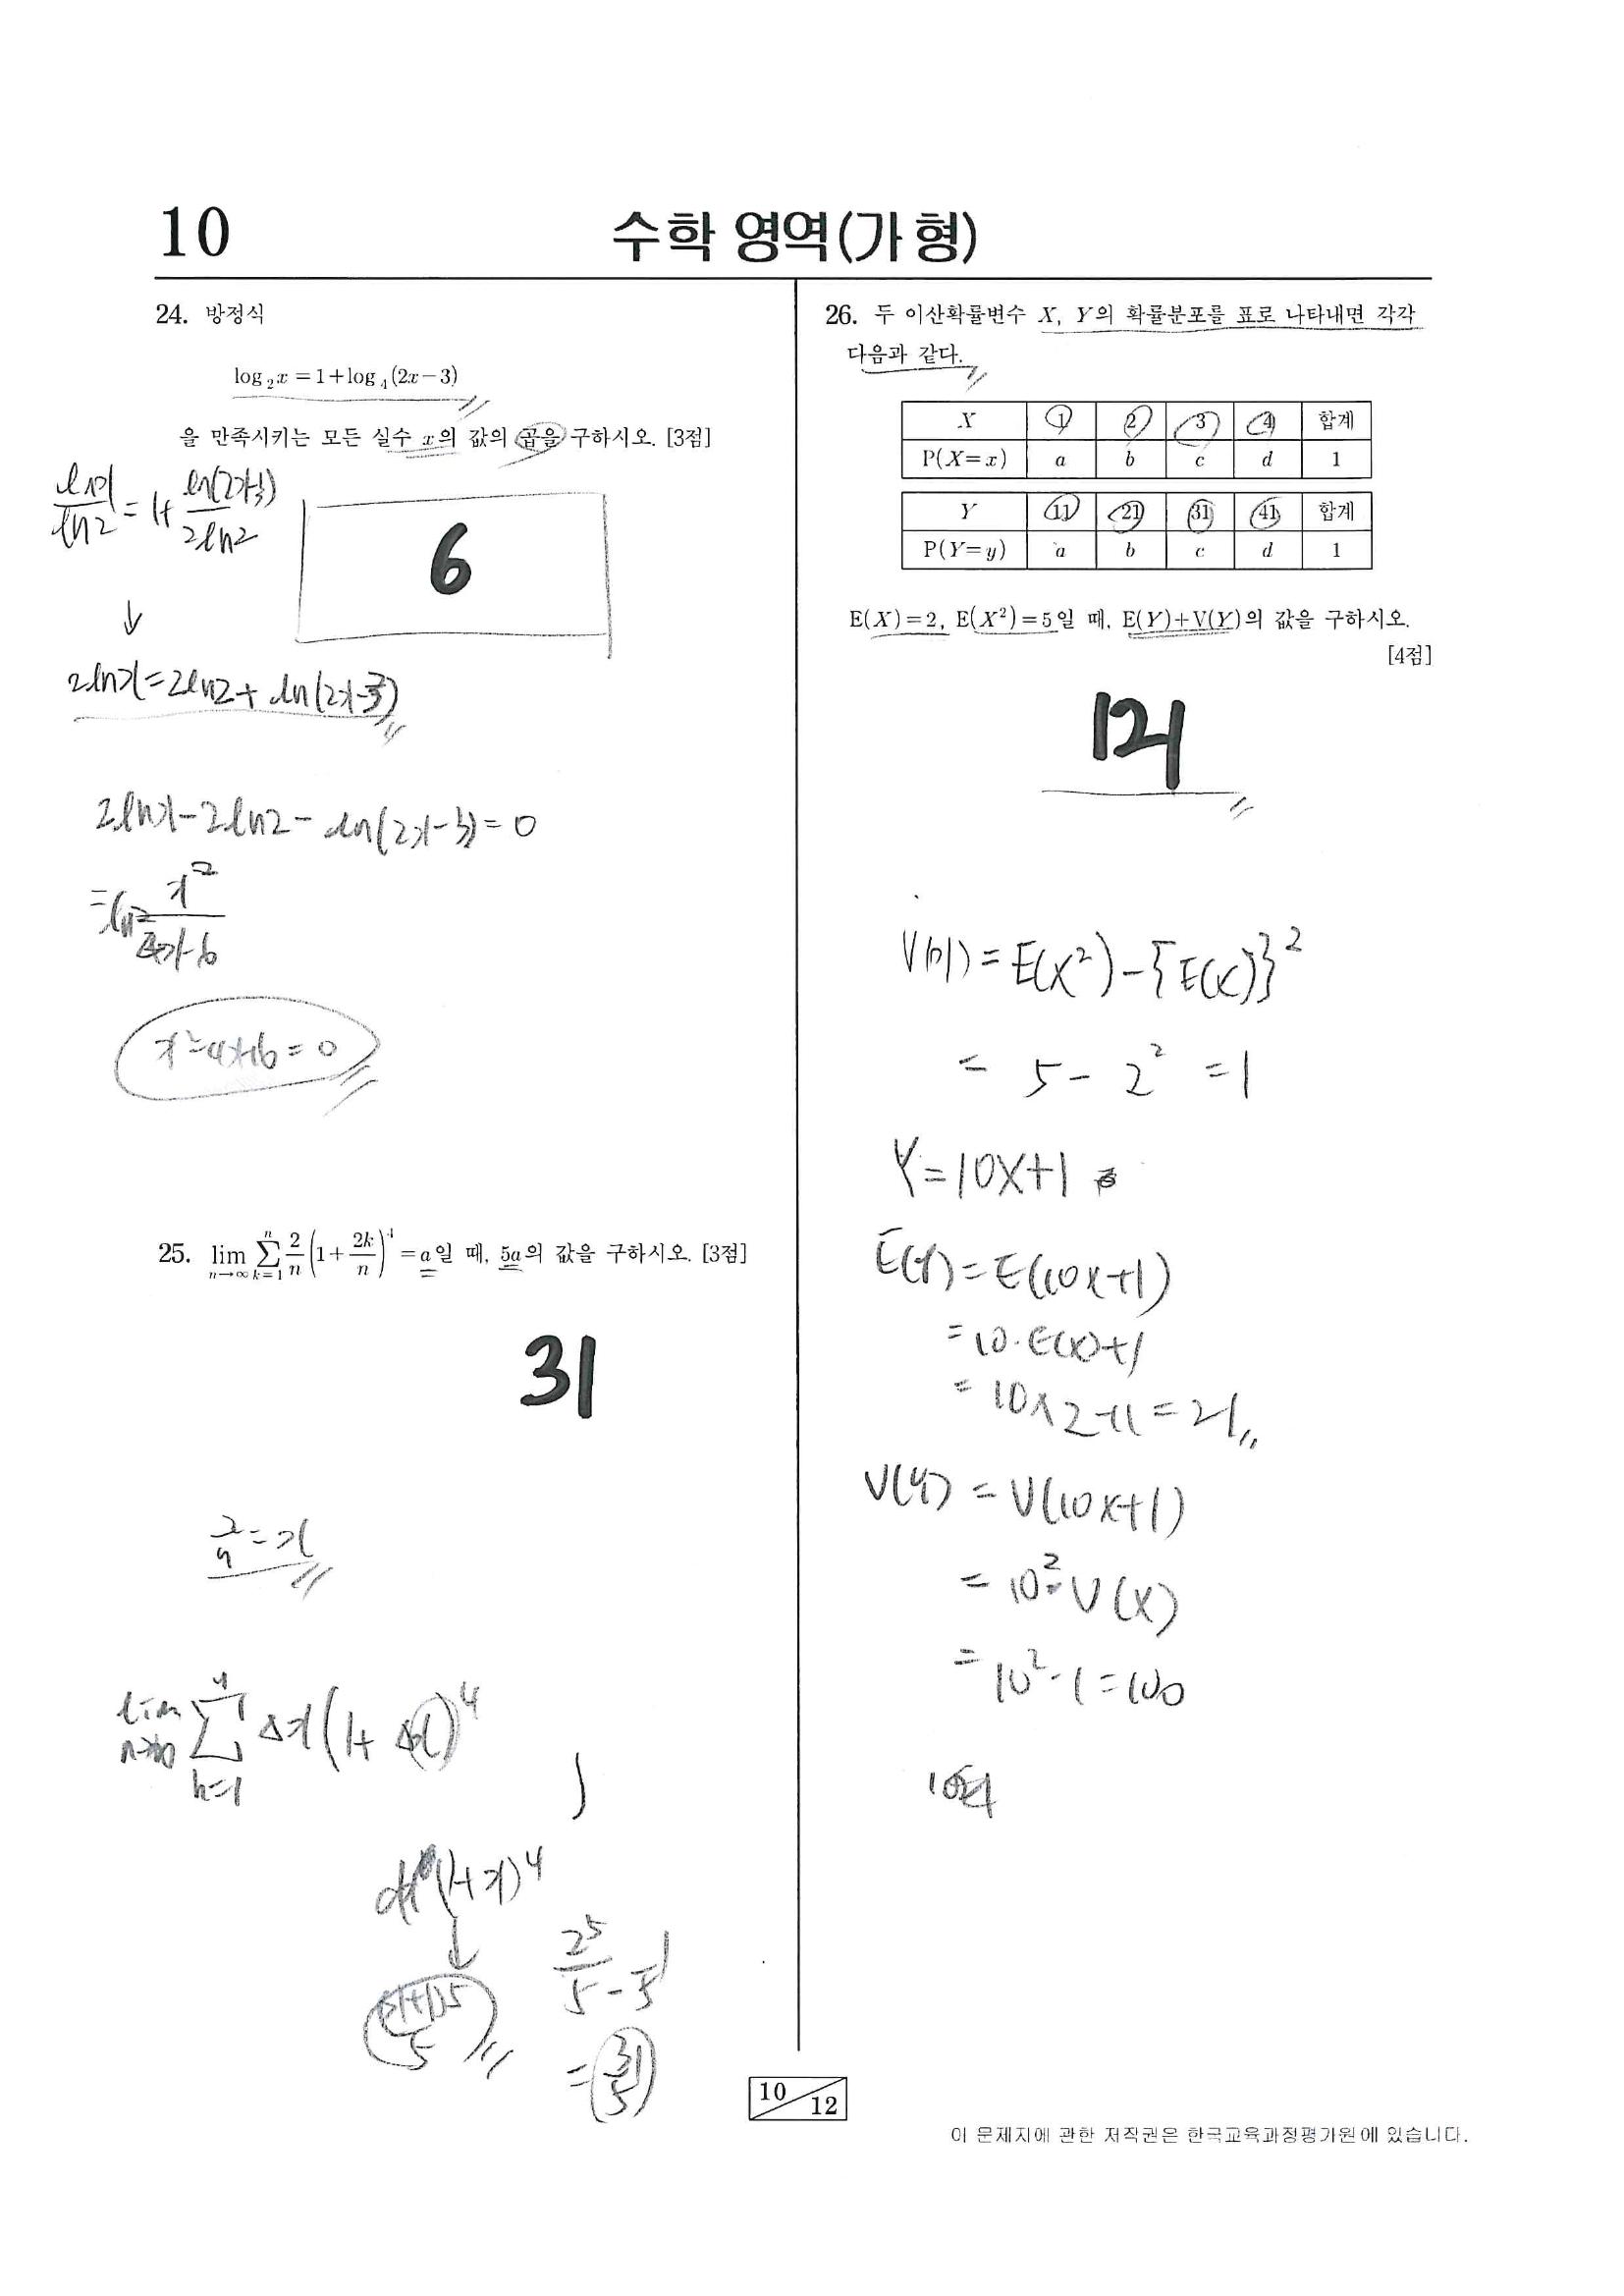 10
수학 영역(가 형)
24. 방정식
log₂x = 1 + log₄(2x − 3)
을 만족시키는 모든 실수 x의 값의 곱을 구하시오. [3점]
= 1 +
6
2lnx = 2ln2 + ln(2x-3)
2lnx - 2ln2 - ln(2x-3) = 0
= ln x² / 4x-6
= 0
25. lim_{n→∞} Σ_{k=1}^{n} 2/n (1 + 2k/n)⁴ = a일 때, 5a의 값을 구하시오. [3점]
31
= x
lim_{n→∞} Σ Δx(1+ Δx)⁴
(1+x)⁴
2⁵/5 - 1/5
= 31/5
26. 두 이산확률변수 X, Y의 확률분포를 표로 나타내면 각각
다음과 같다.
X 1 2 3 4 합계
P(X=x) a b c d 1
Y 11 21 31 41 합계
P(Y=y) a b c d 1
E(X)=2, E(X²)=5일 때, E(Y)+V(Y)의 값을 구하시오.
[4점]
121
= E(X²) - {E(X)}²
= 5 - 2² = 1
Y = 10X+1
E(Y) = E(10X+1)
= 10·E(X)+1
= 10×2+1 = 21
V(Y) = V(10X+1)
= 10²·V(X)
= 10²·1 = 100
10/12
이 문제지에 관한 저작권은 한국교육과정평가원에 있습니다.